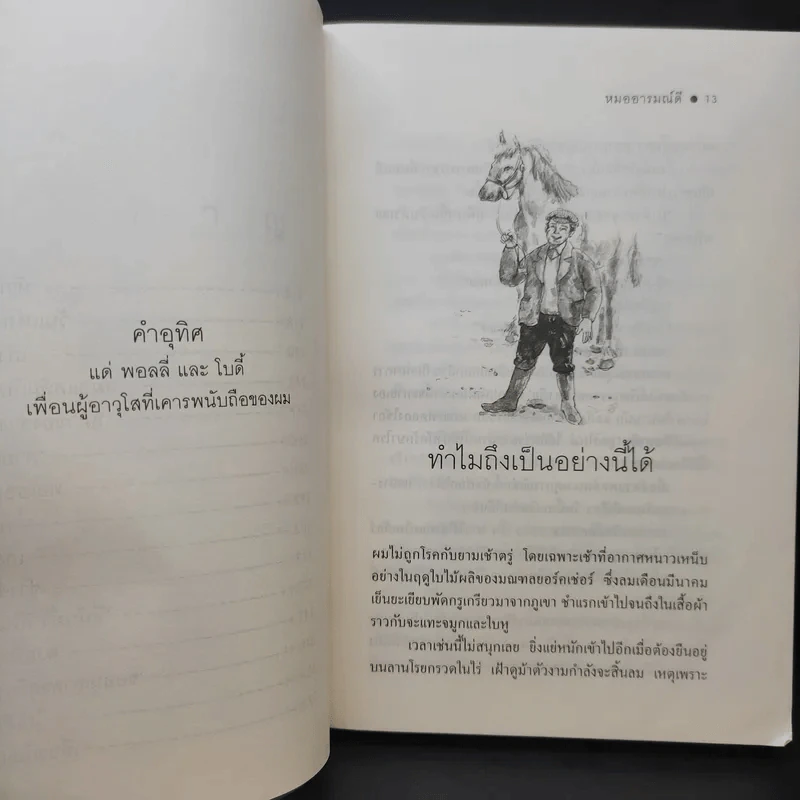 คำอุทิศ
แด่ พอลลี่ และ โบดี้
เพื่อนผู้อาวุโสที่เคารพนับถือของผม
หมออารมณ์ดี ● 13
ทำไมถึงเป็นอย่างนี้ได้
ผมไม่ถูกโรคกับยามเช้าตรู่ โดยเฉพาะเช้าที่อากาศหนาวเหน็บ
อย่างในฤดูใบไม้ผลิของมณฑลยอร์คเช่อร์ ซึ่งลมเดือนมีนาคม
เย็นยะเยียบพัดกรูเกรียวมาจากภูเขา ชำแรกเข้าไปจนถึงในเสื้อผ้า
ราวกับจะแทะจมูกและใบหู
เวลาเช่นนี้ไม่สนุกเลย ยิ่งแย่หนักเข้าไปอีกเมื่อต้องยืนอยู่
บนลานโรยกรวดในไร่ เฝ้าดูม้าตัวงามกำลังจะสิ้นลม เหตุเพราะ